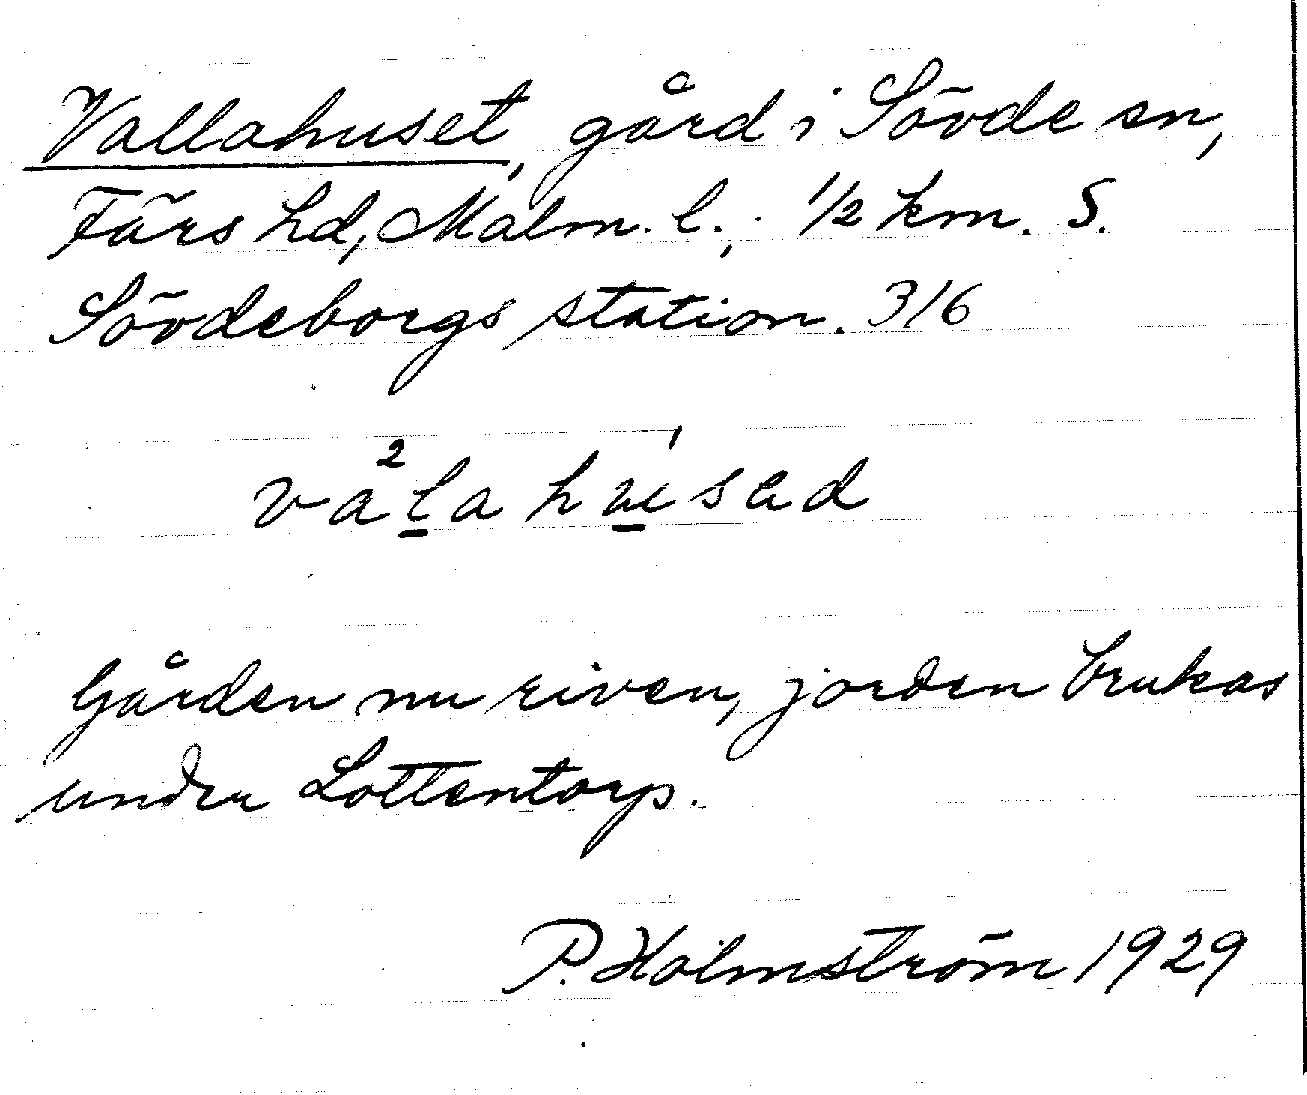 Vallahuset, gård i Sövde sn,
Färs hd, Malm. l.; ½ km. S.
Sövdeborgs station. 316
va²l̲a hú̲sad
Gården nu riven, jorden brukas
under Lottentorp.
P. Holmström 1929